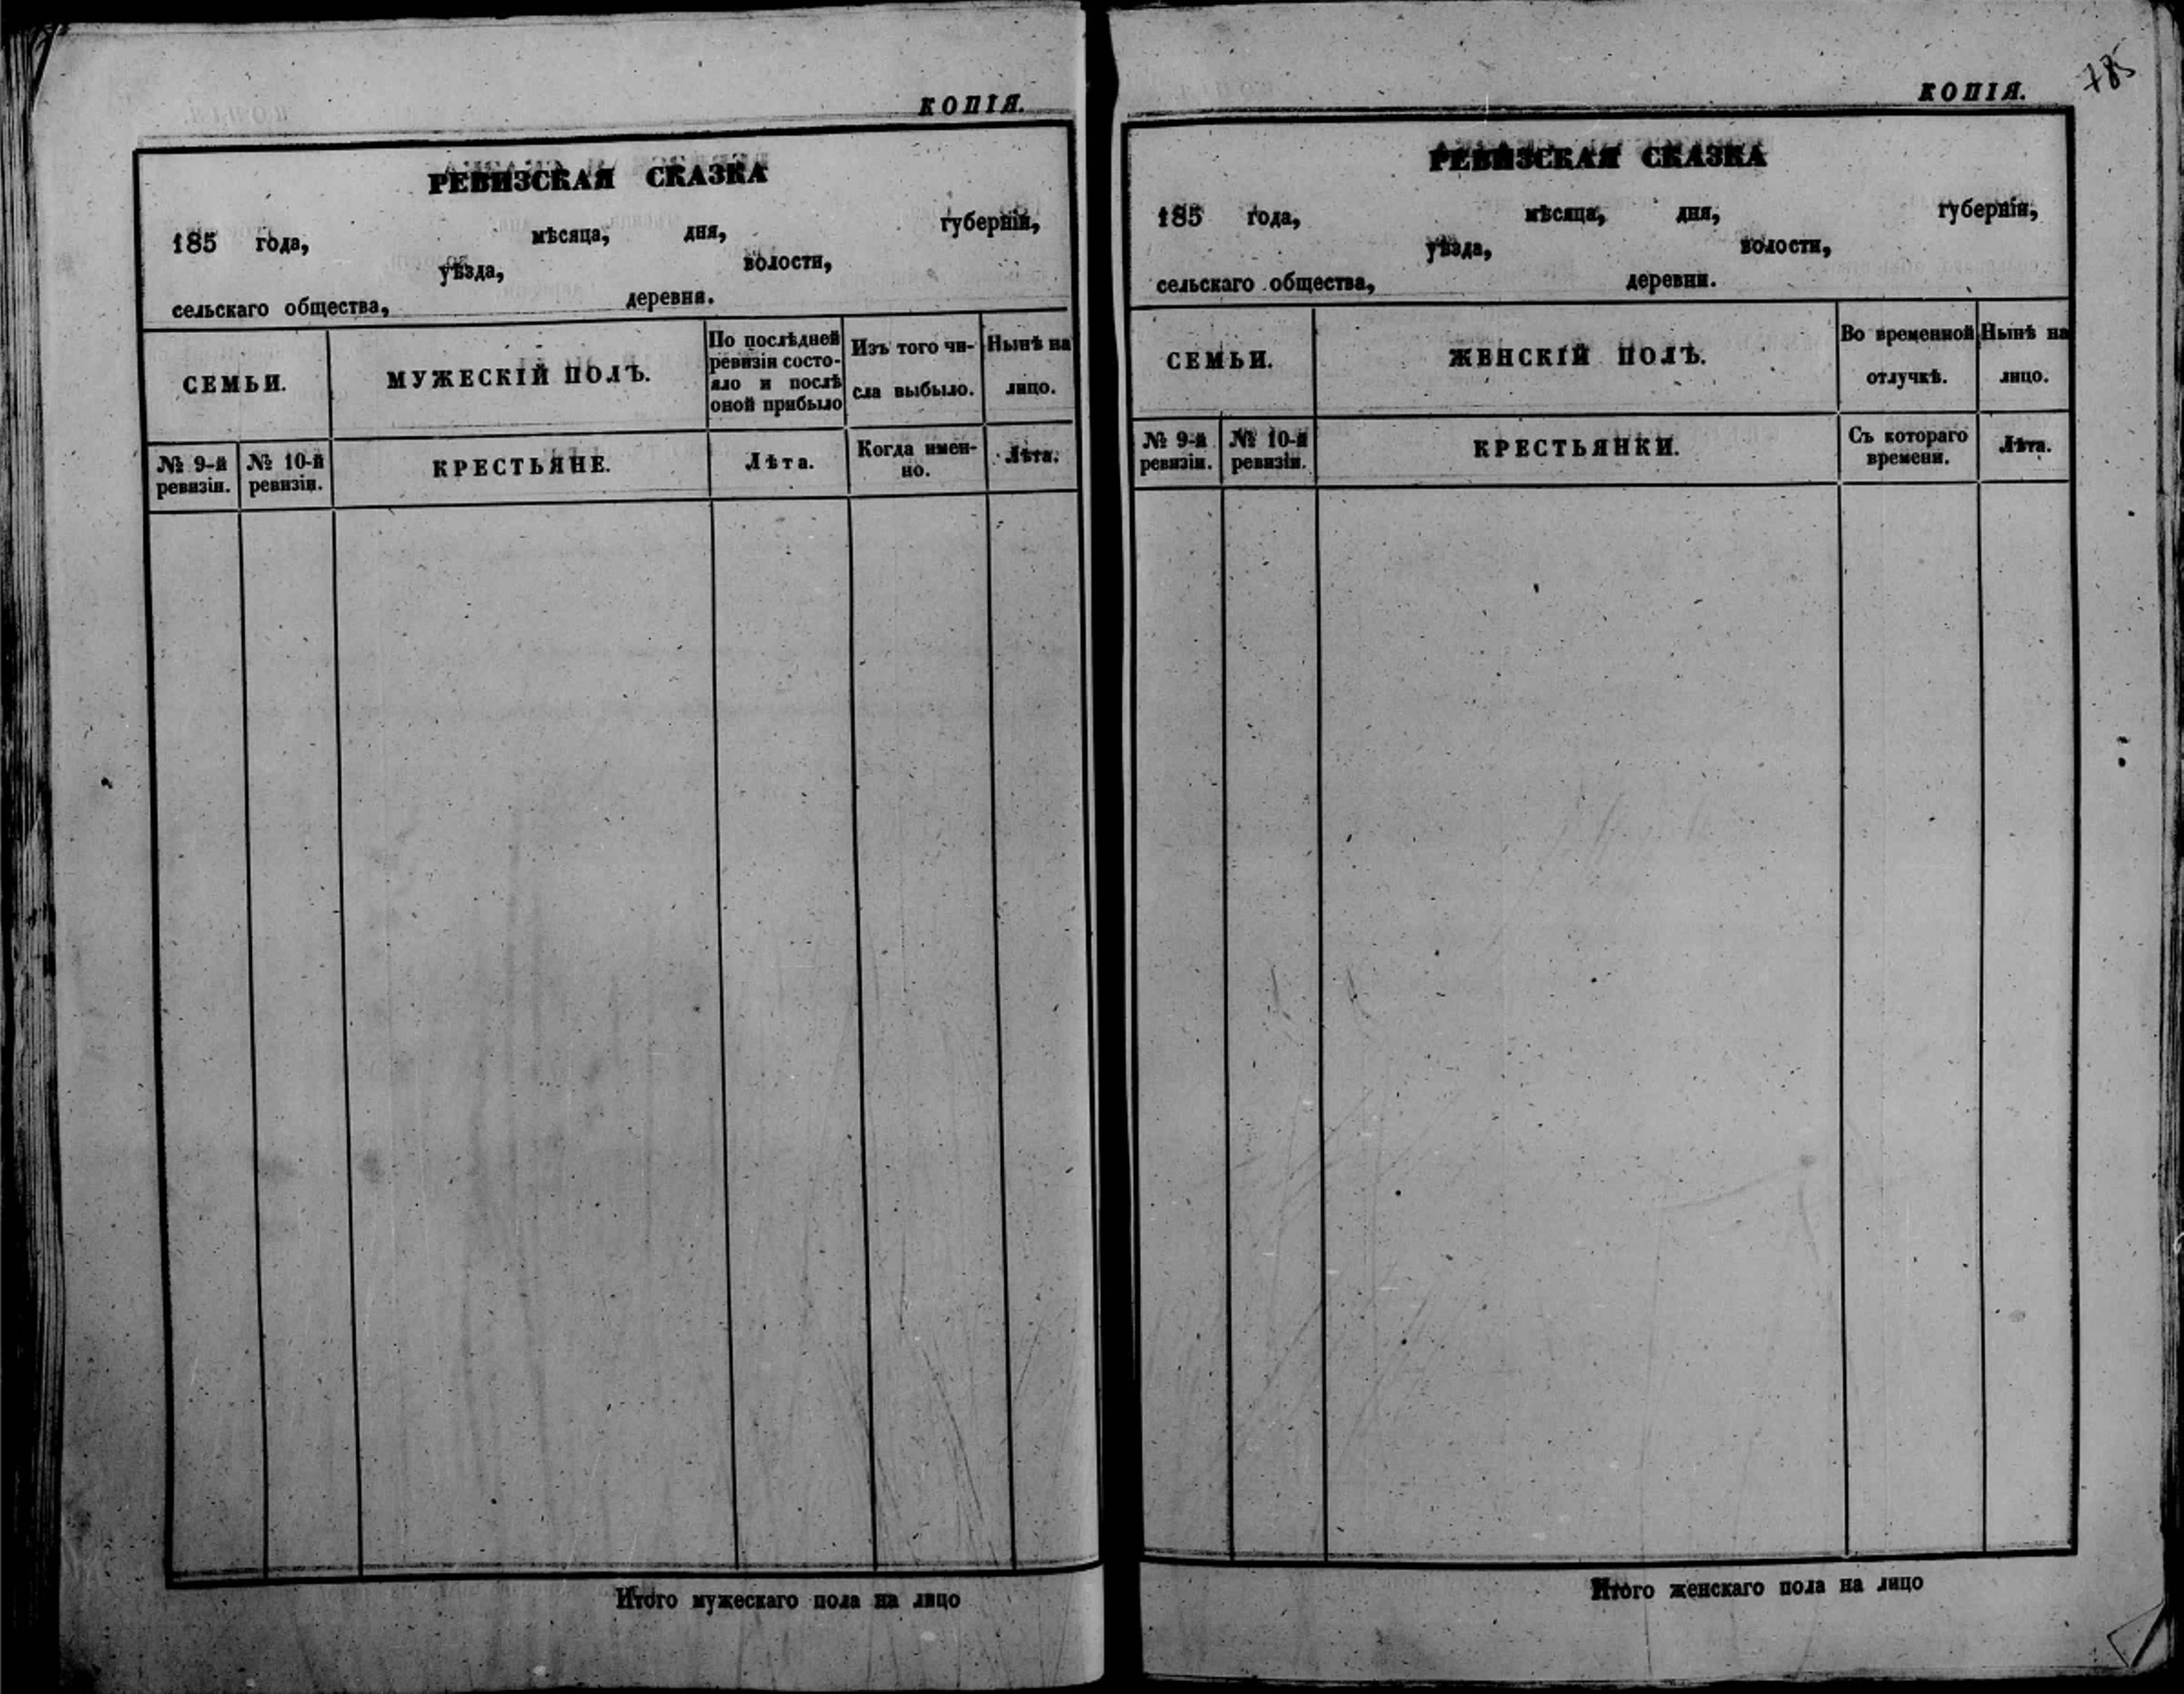 КОПІЯ.
РЕВИЗСКАЯ СКАЗКА
185 года, мѣсяца, дня, губерніи,
уѣзда, волости,
сельскаго общества, деревни.
СЕМЬИ.
МУЖЕСКІЙ ПОЛЪ.
По послѣдней
ревизіи состо-
яло и послѣ
оной прибыло
Изъ того чи-
сла выбыло.
Нынѣ на
лицо.
№ 9-й
ревизіи.
№ 10-й
ревизіи.
КРЕСТЬЯНЕ.
Лѣта.
Когда имен-
но.
Лѣта.
Итого мужескаго пола на лицо
КОПІЯ.
785
РЕВИЗСКАЯ СКАЗКА
185 года, мѣсяца, дня, губерніи,
уѣзда, волости,
сельскаго общества, деревни.
СЕМЬИ.
ЖЕНСКІЙ ПОЛЪ.
Во временной
отлучкѣ.
Нынѣ на
лицо.
№ 9-й
ревизіи.
№ 10-й
ревизіи.
КРЕСТЬЯНКИ.
Съ котораго
времени.
Лѣта.
Итого женскаго пола на лицо